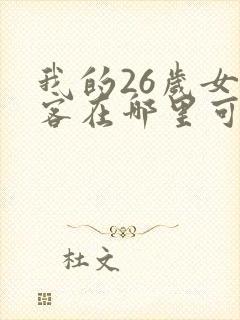 我的26歲女
客在哪里可
杜文